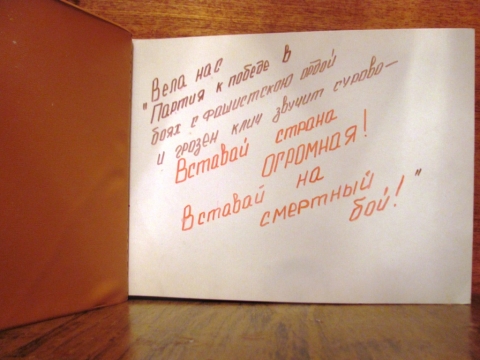 "Вела нас
Партия к победе в
боях с фашистскою ордой
и грозен клич звучит сурово—
Вставай страна
огромная!
Вставай на
смертный
бой!"